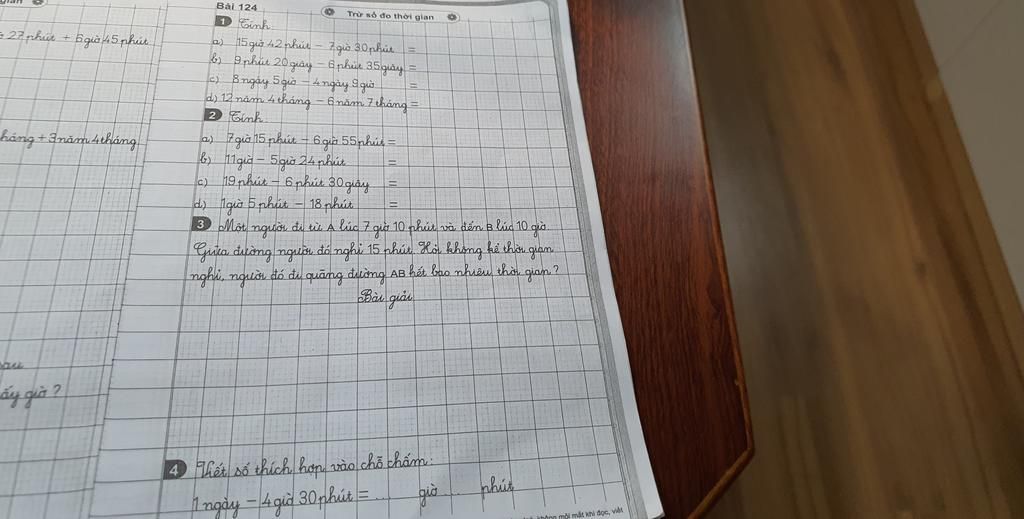 Bài 124
Trừ số đo thời gian
27 phút + 6 giờ 45 phút
1 Tính:
a) 15 giờ 42 phút - 7 giờ 30 phút =
b) 9 phút 20 giây - 6 phút 35 giây =
c) 8 ngày 5 giờ - 4 ngày 9 giờ =
d) 12 năm 4 tháng - 6 năm 7 tháng =
2 Tính:
+ 3 năm 4 tháng
a) 7 giờ 15 phút - 6 giờ 55 phút =
b) 11 giờ - 5 giờ 24 phút =
c) 19 phút - 6 phút 30 giây =
d) 1 giờ 5 phút - 18 phút =
3 Một người đi từ A lúc 7 giờ 10 phút và đến B lúc 10 giờ.
Giữa đường người đó nghỉ 15 phút. Hỏi không kể thời gian
nghỉ, người đó đi quãng đường AB hết bao nhiêu thời gian?
Bài giải
giờ?
4 Viết số thích hợp vào chỗ chấm:
1 ngày - 4 giờ 30 phút = ..... giờ ..... phút
mỏi mắt khi đọc, viết